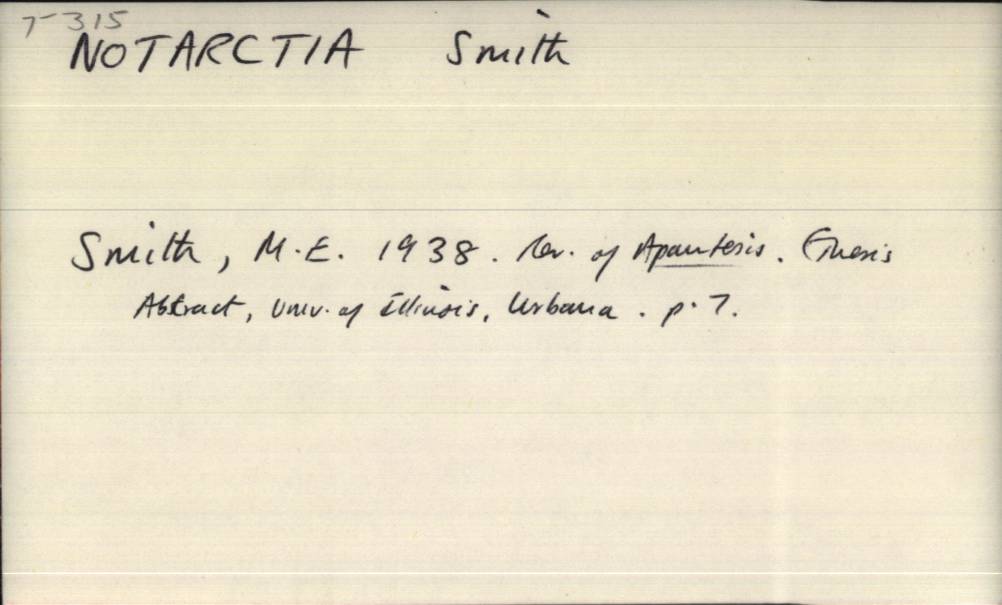 7-315
NOTARCTIA Smith
Smith, M.E. 1938. Rev. of Apantesis. (Thesis
Abstract, Univ. of Illinois, Urbana. p. 7.